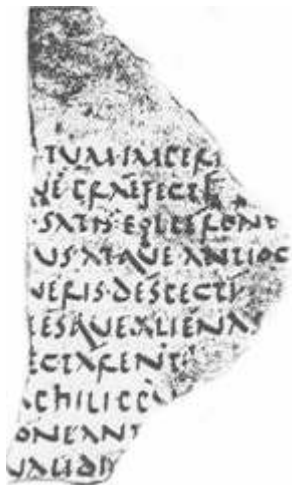 TUM·IMPERI
UE PRAEFECTI
·SATIS·POLLERENT
US·ATQUE ANTIOC
UERIS·DESPECTI
ESQUE·ALIENA
ECTARENT
APHILIPP
ONEANT
UALIDI